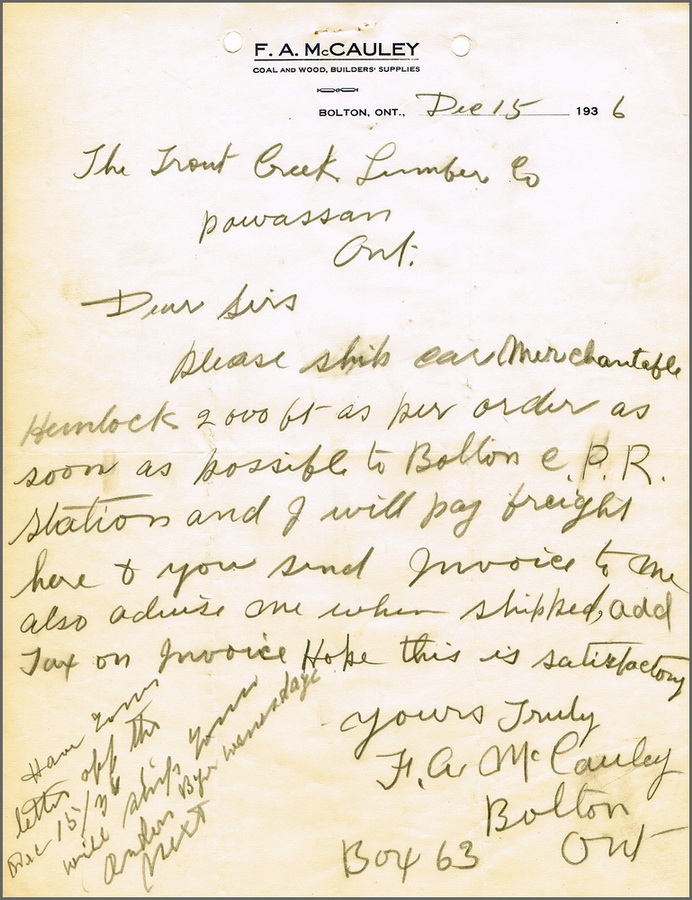 F. A. McCAULEY
COAL AND WOOD, BUILDERS' SUPPLIES
BOLTON, ONT., Dec 15 1936
The Trout Creek Lumber Co
Powassan
Ont.
Dear Sirs
please ship car Merchantable
Hemlock 2000 ft as per order as
soon as possible to Bolton C.P.R.
Station and I will pay freight
here & you send Invoice to me
also advise me when shipped, add
Tax on Invoice Hope this is satisfactory
Yours Truly
F. A. McCauley
Bolton
Ont
Box 63
Have yours
letter off the
Dec 15/36
will ship your
order By wensdays
Next